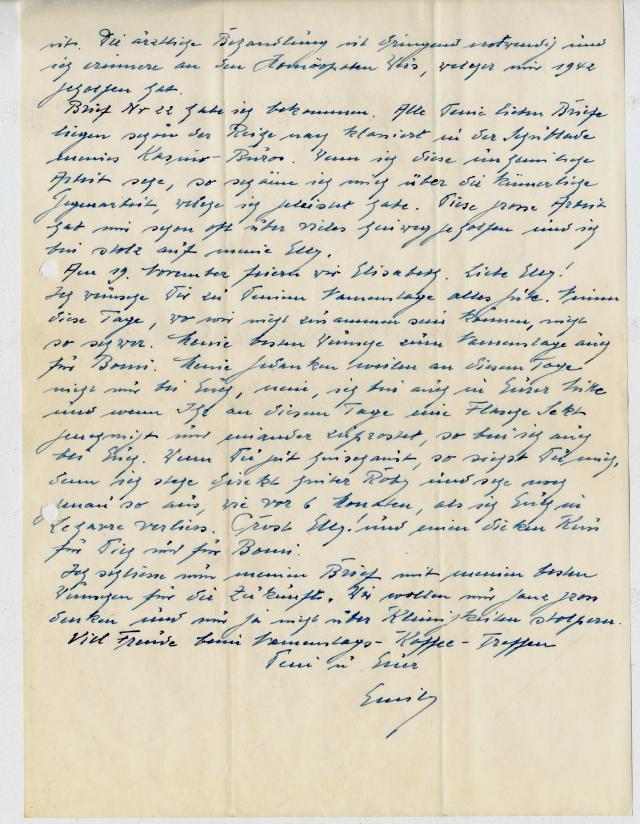 nis. Die ärztliche Behandlung ist dringend notwendig und
ich erinnere an den Homöopaten Weis, welcher mir 1942
geholfen hat.
Brief No 22 habe ich bekommen. Alle Deine lieben Briefe
liegen schon der Reihe nach klasiert in der Schublade
meines Kasino-Büros. Wenn ich diese unheimliche
Arbeit sehe, so schäme ich mich über die kümmerliche
Gegenarbeit, welche ich geleistet habe. Diese grosse Arbeit
hat mir schon oft über vieles hinweg geholfen und ich
bin stolz auf meine Elly.
Am 19. November feiern wir Elisabeth. Liebe Elly!
Ich wünsche Dir zu Deinem Namenstage alles Gute. Nimm
diese Tage, wo wir nicht zusammen sein können, nicht
so schwer. Meine besten Wünsche zum Namenstage auch
für Bomi. Meine Gedanken weilen an diesem Tage
nicht nur bei Euch, nein, ich bin auch in Eurer Mitte
und wenn Ihr an diesem Tage eine Flasche Sekt
genehmigt und einander zuprostet, so bin ich auch
bei Euch. Wenn Du gut hinschaust, so siehst Du mich,
denn ich stehe direkt hinter Roby und sehe noch
genau so aus, wie vor 6 Monaten, als ich Euch in
verliess. Prost Elly! und einen dicken Kuss
für Dich und für Bomi.
Ich schliesse nun meinen Brief mit meinen besten
Wünschen für die Zukunft. Wir wollen nur ganz gross
denken und nur ja nicht über Kleinigkeiten stolpern.
Viel Freude beim Namenstags-Kaffee-Treffen
Dein u Euer
Emil